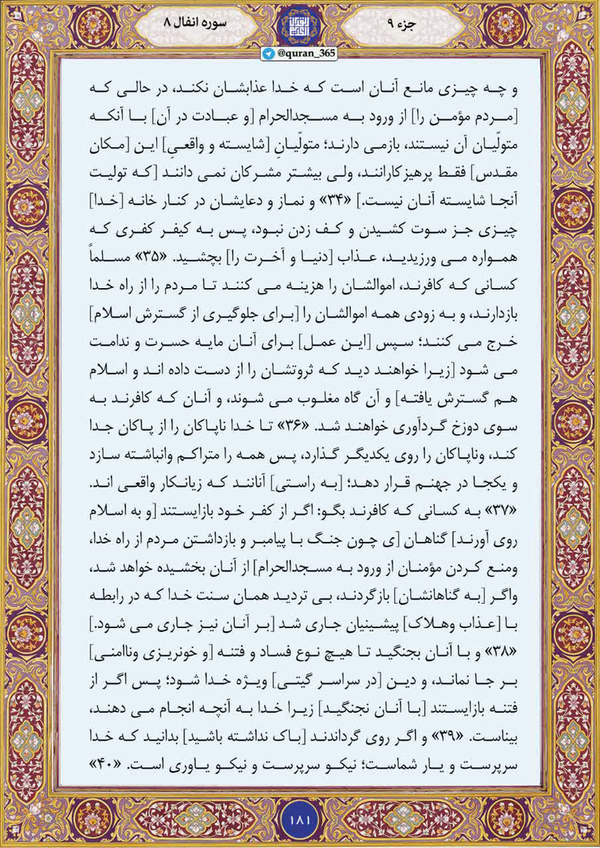 جزء ۹
سوره انفال ۸
@quran_365
و چه چیزی مانع آنان است که خدا عذابشان نکند، در حالی که
[مردم مؤمن را] از ورود به مسجدالحرام [و عبادت در آن] با آنکه
متولّیان آن نیستند، بازمی دارند؛ متولّیانِ [شایسته و واقعیِ] این [مکان
مقدس] فقط پرهیزکارانند، ولی بیشتر مشرکان نمی دانند [که تولیت
آنجا شایسته آنان نیست.] «۳۴» و نماز و دعایشان در کنار خانه [خدا]
چیزی جز سوت کشیدن و کف زدن نبود، پس به کیفر کفری که
همواره می ورزیدید، عذاب [دنیا و آخرت را] بچشید. «۳۵» مسلماً
کسانی که کافرند، اموالشان را هزینه می کنند تا مردم را از راه خدا
بازدارند، و به زودی همه اموالشان را [برای جلوگیری از گسترش اسلام]
خرج می کنند؛ سپس [این عمل] برای آنان مایه حسرت و ندامت
می شود [زیرا خواهند دید که ثروتشان را از دست داده اند و اسلام
هم گسترش یافته] و آن گاه مغلوب می شوند، و آنان که کافرند به
سوی دوزخ گردآوری خواهند شد. «۳۶» تا خدا ناپاکان را از پاکان جدا
کند، وناپاکان را روی یکدیگر گذارد، پس همه را متراکم وانباشته سازد
و یکجا در جهنم قرار دهد؛ [به راستی] آنانند که زیانکار واقعی اند.
«۳۷» به کسانی که کافرند بگو: اگر از کفر خود بازایستند [و به اسلام
روی آورند] گناهان [ی چون جنگ با پیامبر و بازداشتن مردم از راه خدا،
ومنع کردن مؤمنان از ورود به مسجدالحرام] از آنان بخشیده خواهد شد،
واگر [به گناهانشان] بازگردند، بی تردید همان سنت خدا که در رابطه
با [عذاب وهلاک] پیشینیان جاری شد [بر آنان نیز جاری می شود.]
«۳۸» و با آنان بجنگید تا هیچ نوع فساد و فتنه [و خونریزی وناامنی]
بر جا نماند، و دین [در سراسر گیتی] ویژه خدا شود؛ پس اگر از
فتنه بازایستند [با آنان نجنگید] زیرا خدا به آنچه انجام می دهند،
بیناست. «۳۹» و اگر روی گرداندند [باک نداشته باشید] بدانید که خدا
سرپرست و یار شماست؛ نیکو سرپرست و نیکو یاوری است. «۴۰»
۱۸۱